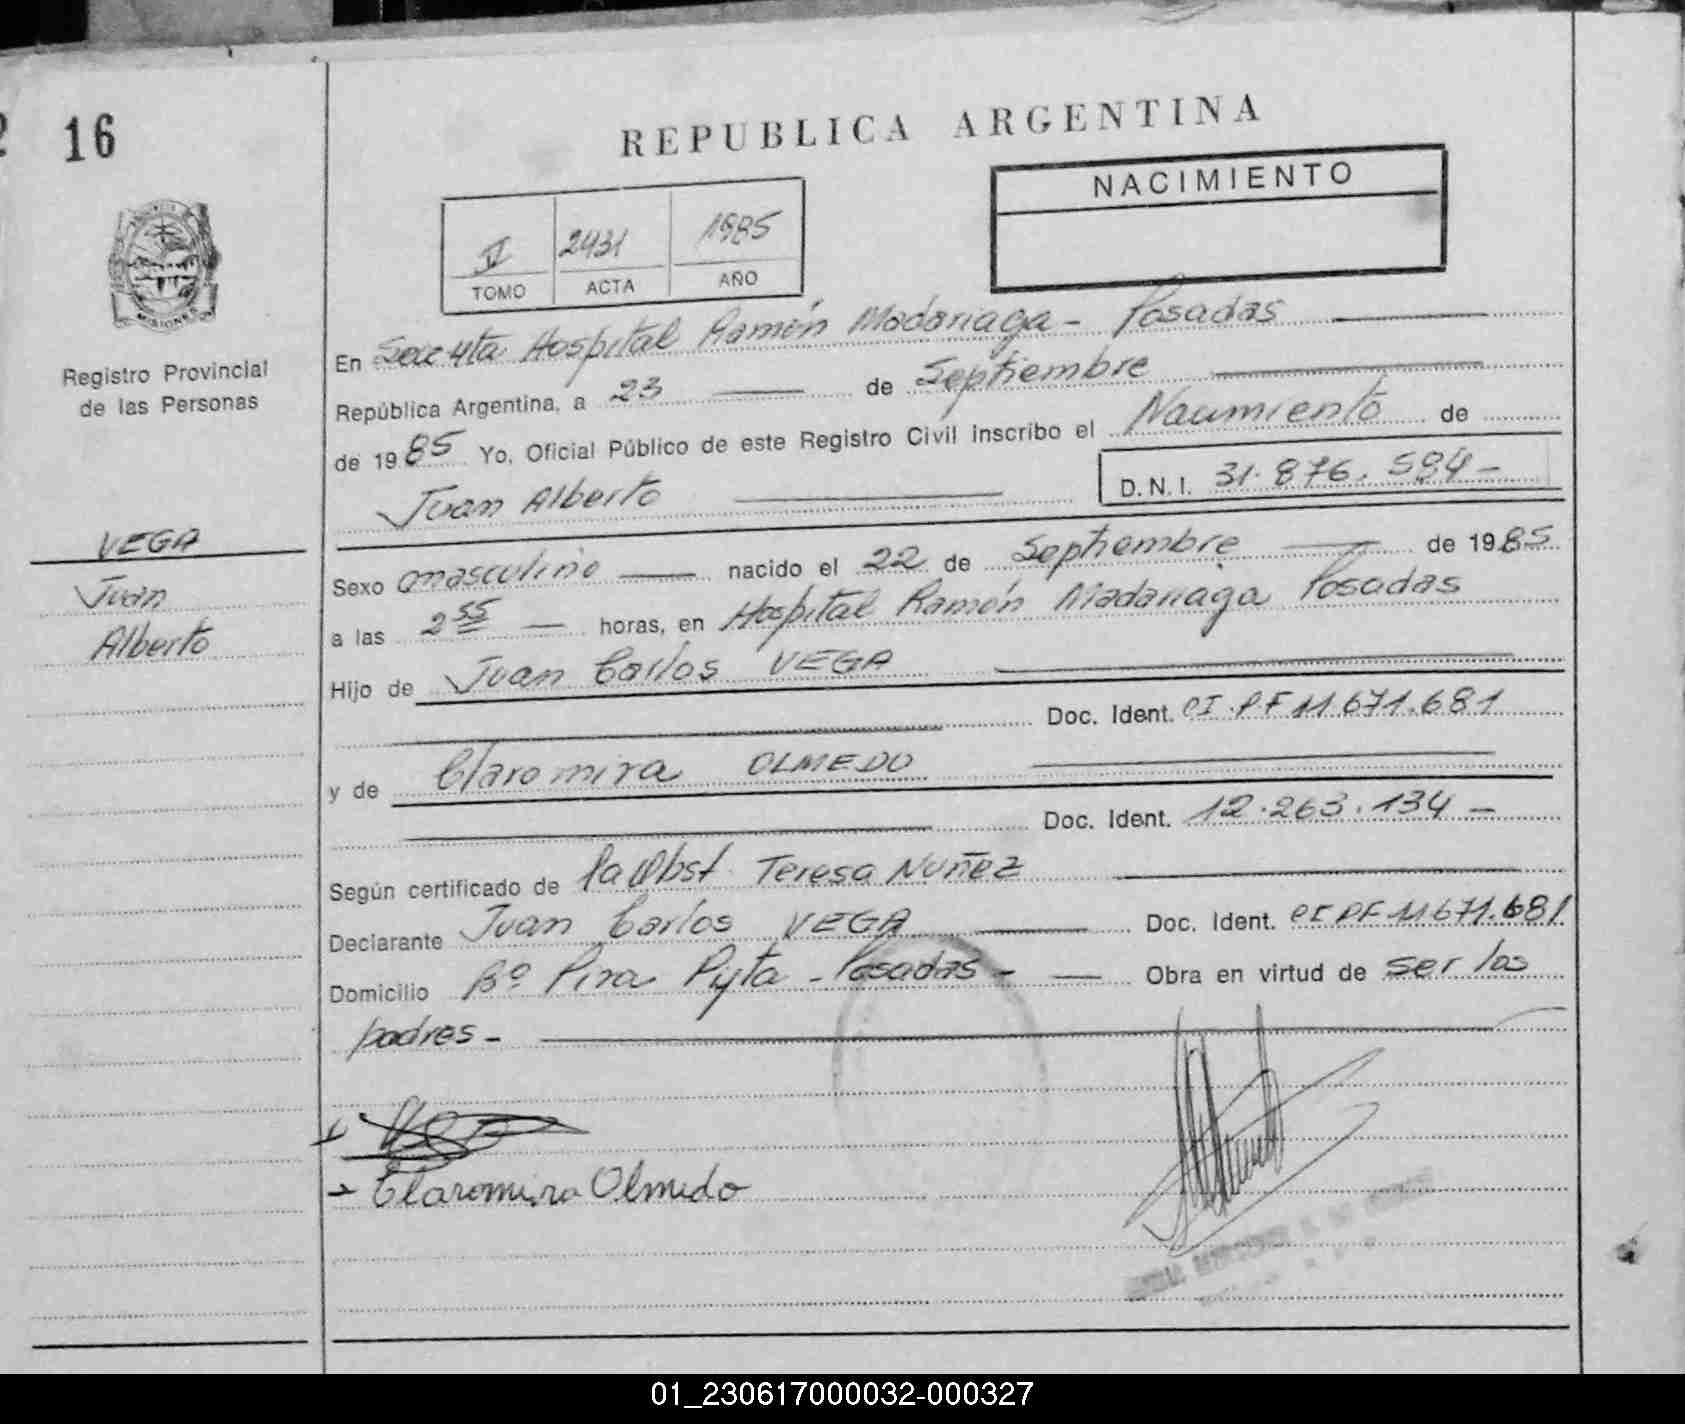 16
REPUBLICA ARGENTINA
NACIMIENTO
V 2431 1985
TOMO ACTA AÑO
MISIONES
Registro Provincial
de las Personas
VEGA
Juan
Alberto
En Hospital Ramón Madariaga - Posadas
República Argentina, a 23 de Septiembre
de 1985 Yo, Oficial Público de este Registro Civil inscribo el Nacimiento de
Juan Alberto D.N.I. 31.876.584-
Sexo masculino nacido el 22 de Septiembre de 1985
a las 2 55 horas, en Hospital Ramón Madariaga Posadas
Hijo de Juan Carlos VEGA
Doc. Ident. CI.PF 11.671.681
y de Claromira OLMEDO
Doc. Ident. 12.263.134-
Según certificado de Obst. Teresa Nuñez
Declarante Juan Carlos VEGA Doc. Ident. CI PF 11671.681
Domicilio Bº Pira Pyta - Posadas - Obra en virtud de ser los
padres -
Claromira Olmedo
01_230617000032-000327